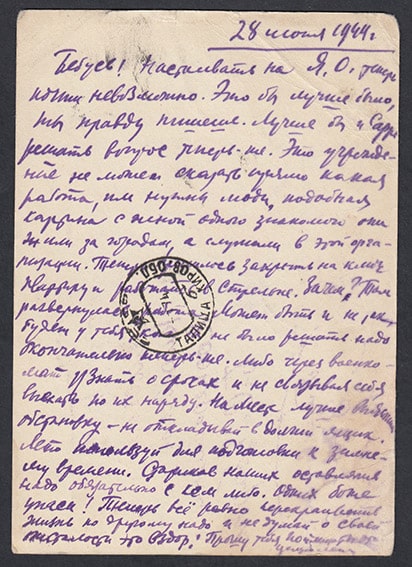 28 июня 1944 г.
Бебусь! Настаивать на Я. О. теперь
почти невозможно. Это бы лучше было,
ты правду пишешь. Лучше бы и Сарре
решать вопрос теперь-же. Это учрежде-
ние не может сказать прямо какая
работа, им нужны люди, подобная
картина с женой одного знакомого они
жили за городом, а служили в этой орга-
низации. Теперь закрыть на ключ
квартиру и работать в Стрельне. Зачем? Там
развернулась работа. Может быть и не так
будет у тебя но было решать надо
окончательно теперь-же. Либо через военко-
мат узнать о сроках и не связывай себя
выездом по их наряду. На месте лучше
обстановку - не откладывай в долгий ящик.
Лето используй для подготовки к зимне-
му времени. Стариков наших оставлять
надо обязательно с кем либо. Одних боже
упаси! Теперь всё равно перекраивать
жизнь по другому надо и не думай о своей
отсталости это вздор! Прошу тебя
КИРОВ. ОБЛ.